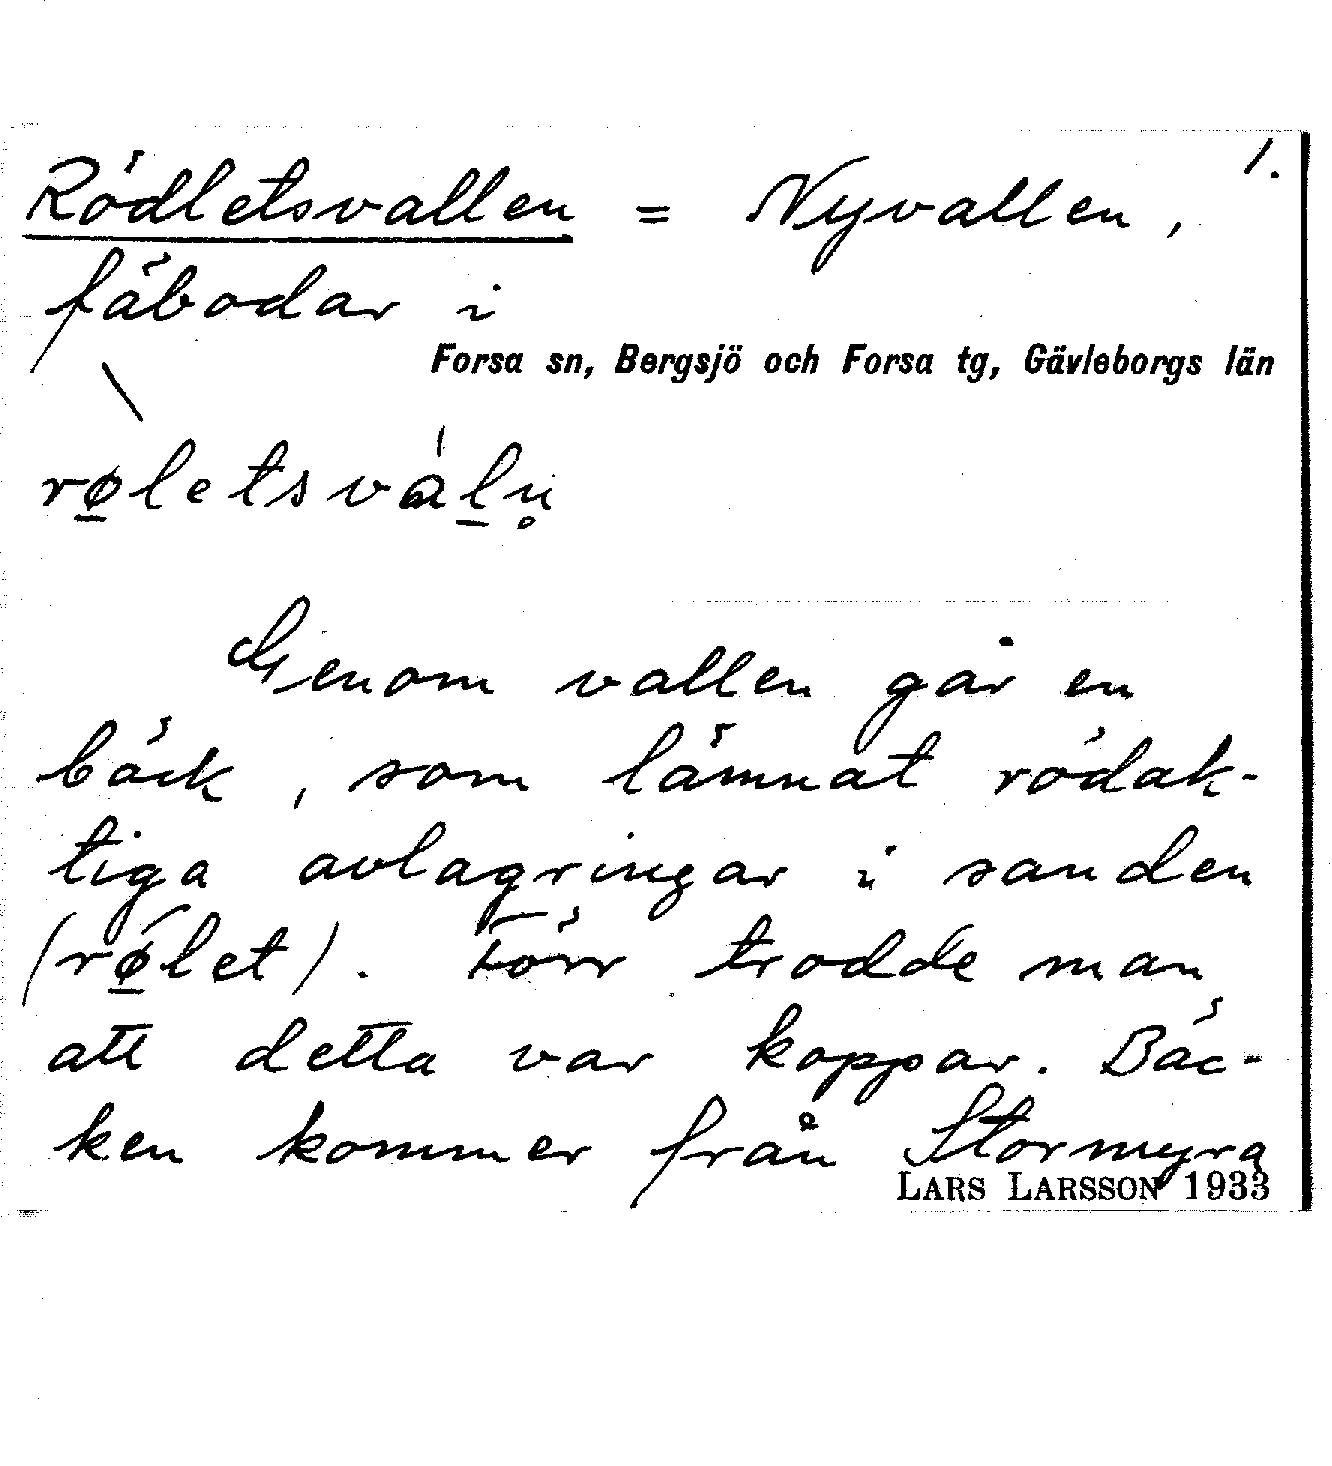 1.
Rödletsvallen = Nyvallen,
fäbodar i
Forsa sn, Bergsjö och Forsa tg, Gävleborgs län
rø̱letsvàḻn̥
Genom vallen går en
bäck, som lämnat rödak-
tiga avlagringar i sanden
(rø̱let). Förr trodde man
att detta var koppar. Bäc-
ken kommer från Stormyra
LARS LARSSON 1933